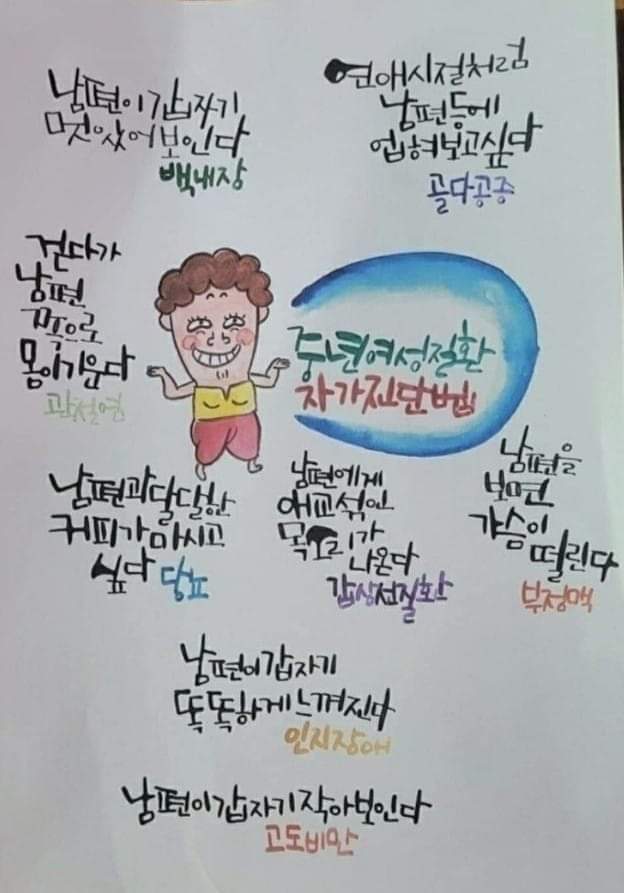 남편이갑자기
멋있어보인다
백내장
연애시절처럼
남편등에
업혀보고싶다
골다공증
걷다가
남편
쪽으로
몸이기운다
관절염
중년여성질환
자가진단법
남편과달달한
커피가마시고
싶다 당뇨
남편에게
애교섞인
목소리가
나온다
갑상선질환
남편을
보면
가슴이
떨린다
부정맥
남편이갑자기
똑똑하게느껴진다
인지장애
남편이갑자기작아보인다
고도비만